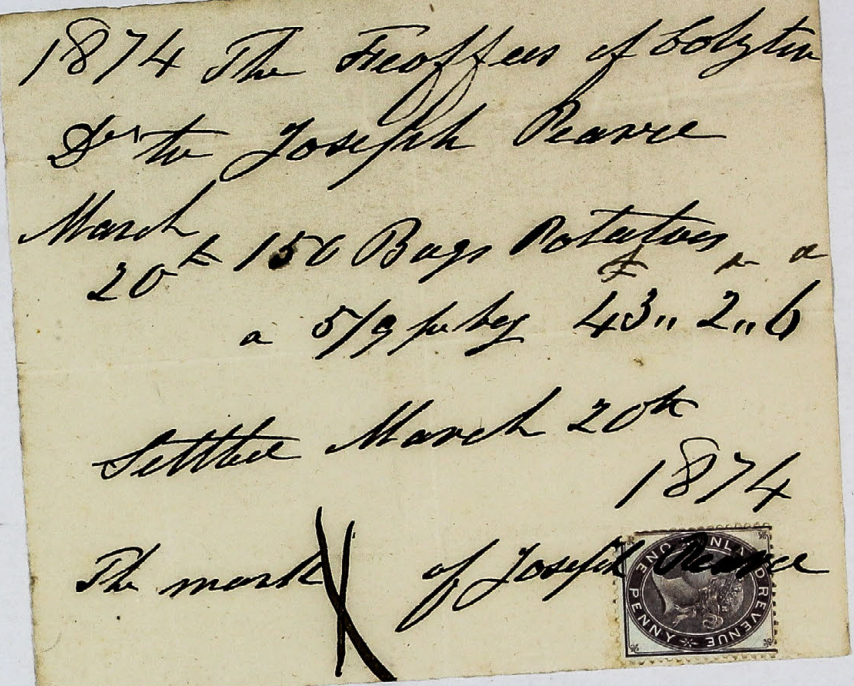 1874 The Feoffees of Colyton
Drs to Joseph Pearce
March
20th 150 Bags Potatoes
£ s d
a 5/9 per bag 43 " 2 " 6
Settled March 20th
1874
The mark X of Joseph Pearce
INLAND REVENUE
ONE PENNY